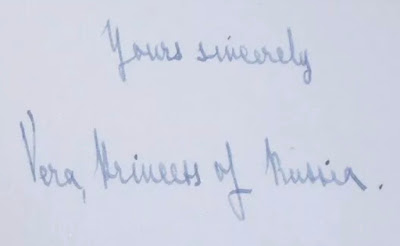 Yours sincerely
Vera, Princess of Russia.